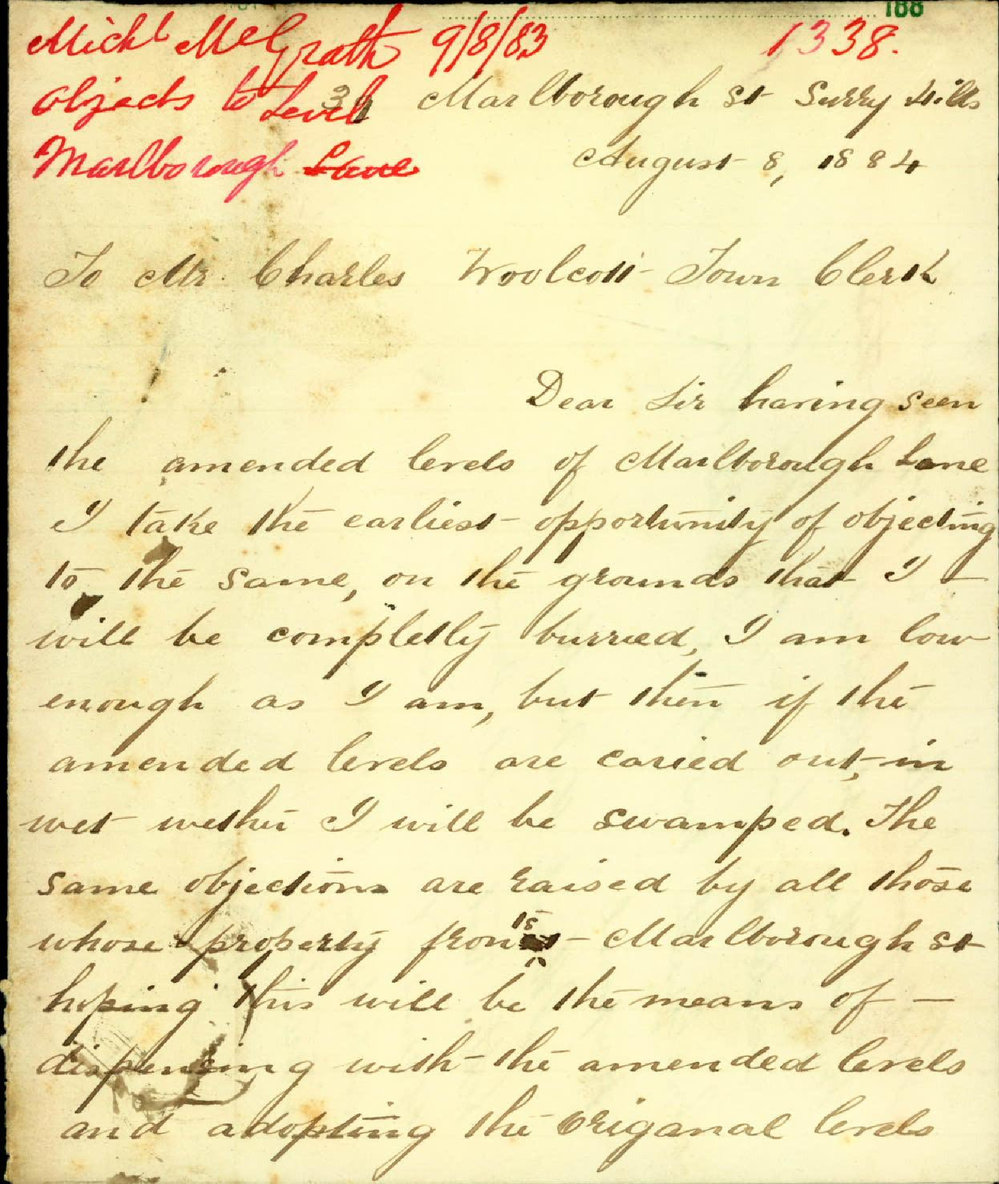 188
Michl McGrath 9/8/83 1338.
objects to Level
Marlborough Lane
34 Marlborough st Surry Hills
August 8, 1884
To Mr. Charles Woolcott Town Clerk
Dear Sir having seen
the amended levels of Marlborough Lane
I take the earliest opportunity of objecting
to the same, on the grounds that I -
will be completly burried, I am low
enough as I am, but then if the
amended levels are caried out, in
wet wether I will be swamped. The
same objections are raised by all those
whose property fronts - Marlborough st
hoping this will be the means of -
dispensing with the amended levels
and adopting the origanal levels